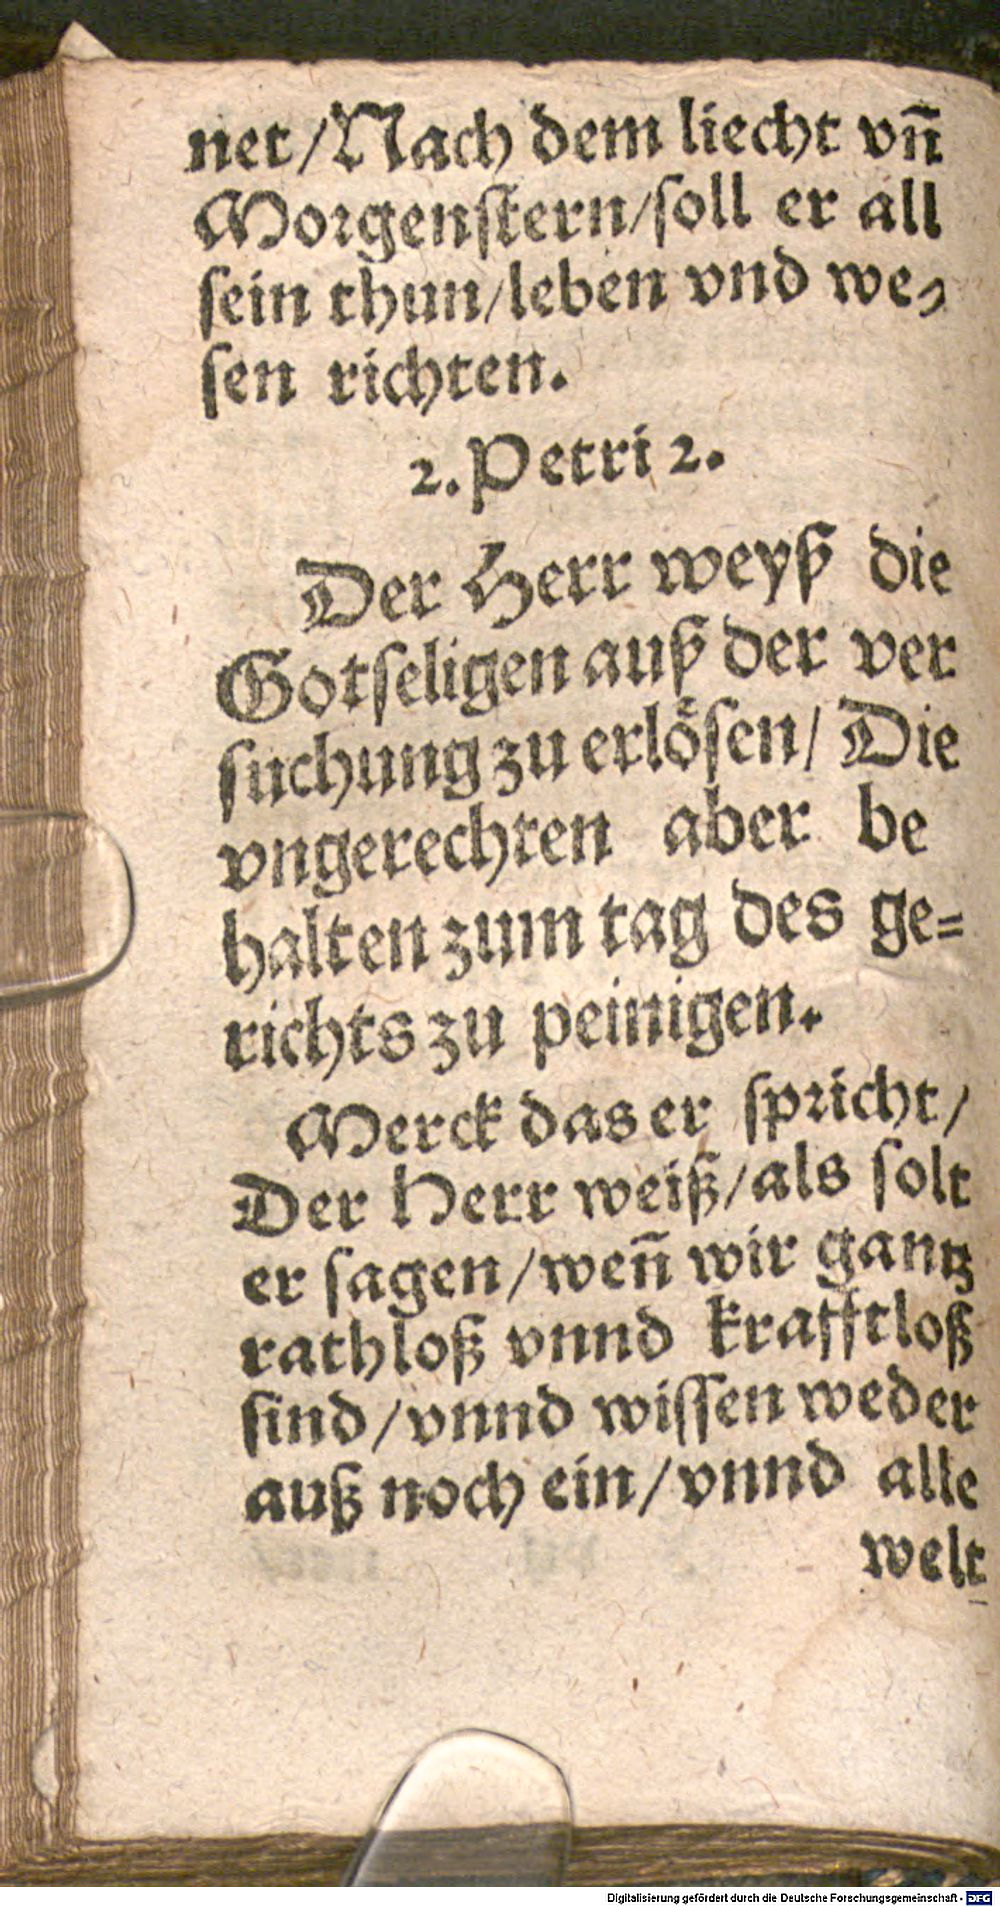 net/Nach dem liecht vn̄
Morgenſtern/ſoll er all
ſein thun/leben vnd we⸗
ſen richten.
2. Petri 2.
Der Herr weyß die
Gotſeligen auß der ver
ſuchung zu erlöſen/ Die
vngerechten aber be
halten zum tag des ge⸗
richts zu peinigen.
Merck das er ſpricht/
Der Herr weiß/als ſolt
er ſagen/wen̄ wir gantz
rathloß vnnd krafftloß
ſind/vnnd wiſſen weder
auß noch ein/vnnd alle
welt
Digitalisierung gefördert durch die Deutsche Forschungsgemeinschaft - DFG